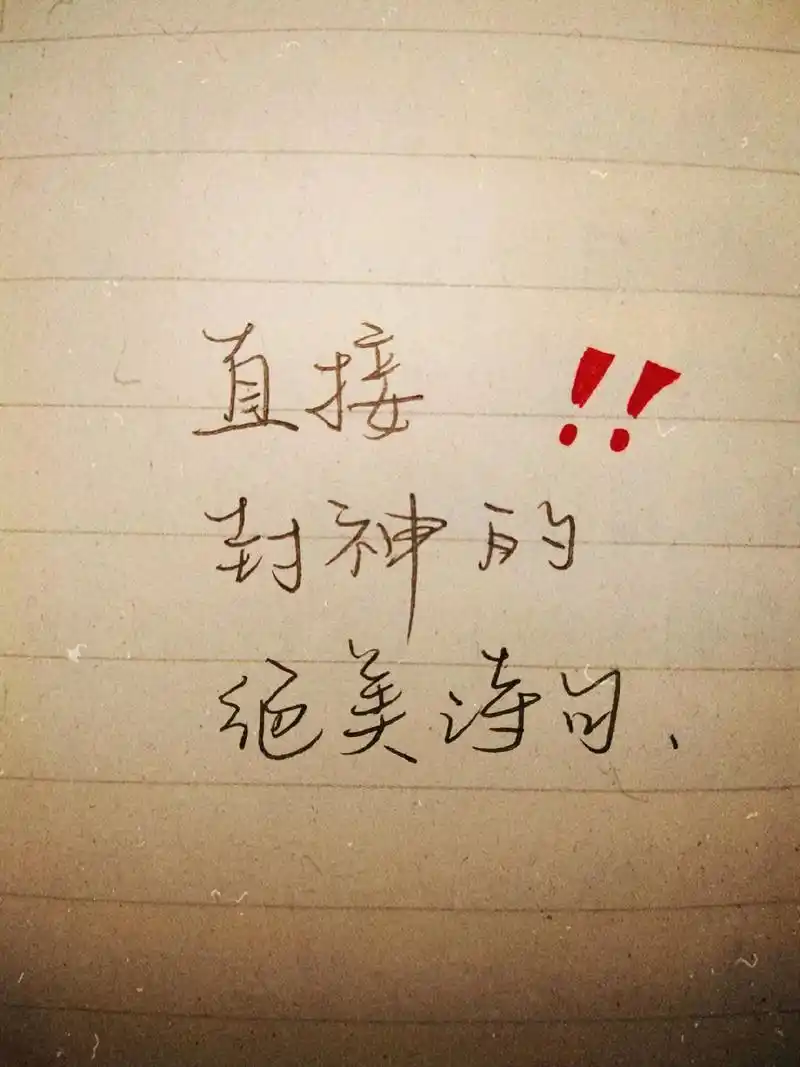 直接!!
封神的
绝美诗句、